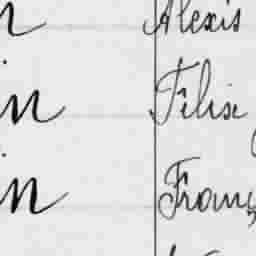 n Alexis
in Félix
in Franç